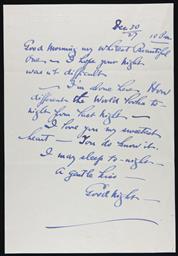 Dec 30
27 10 P.m.
Good Morning my Whitest Beautiful
One — I hope your night
was not difficult
— I'm done here. How
different the World looks to-
night from last night —
— I love you my sweetest
heart — You do know it.
I may sleep to-night —
A gentle kiss
Good Night —